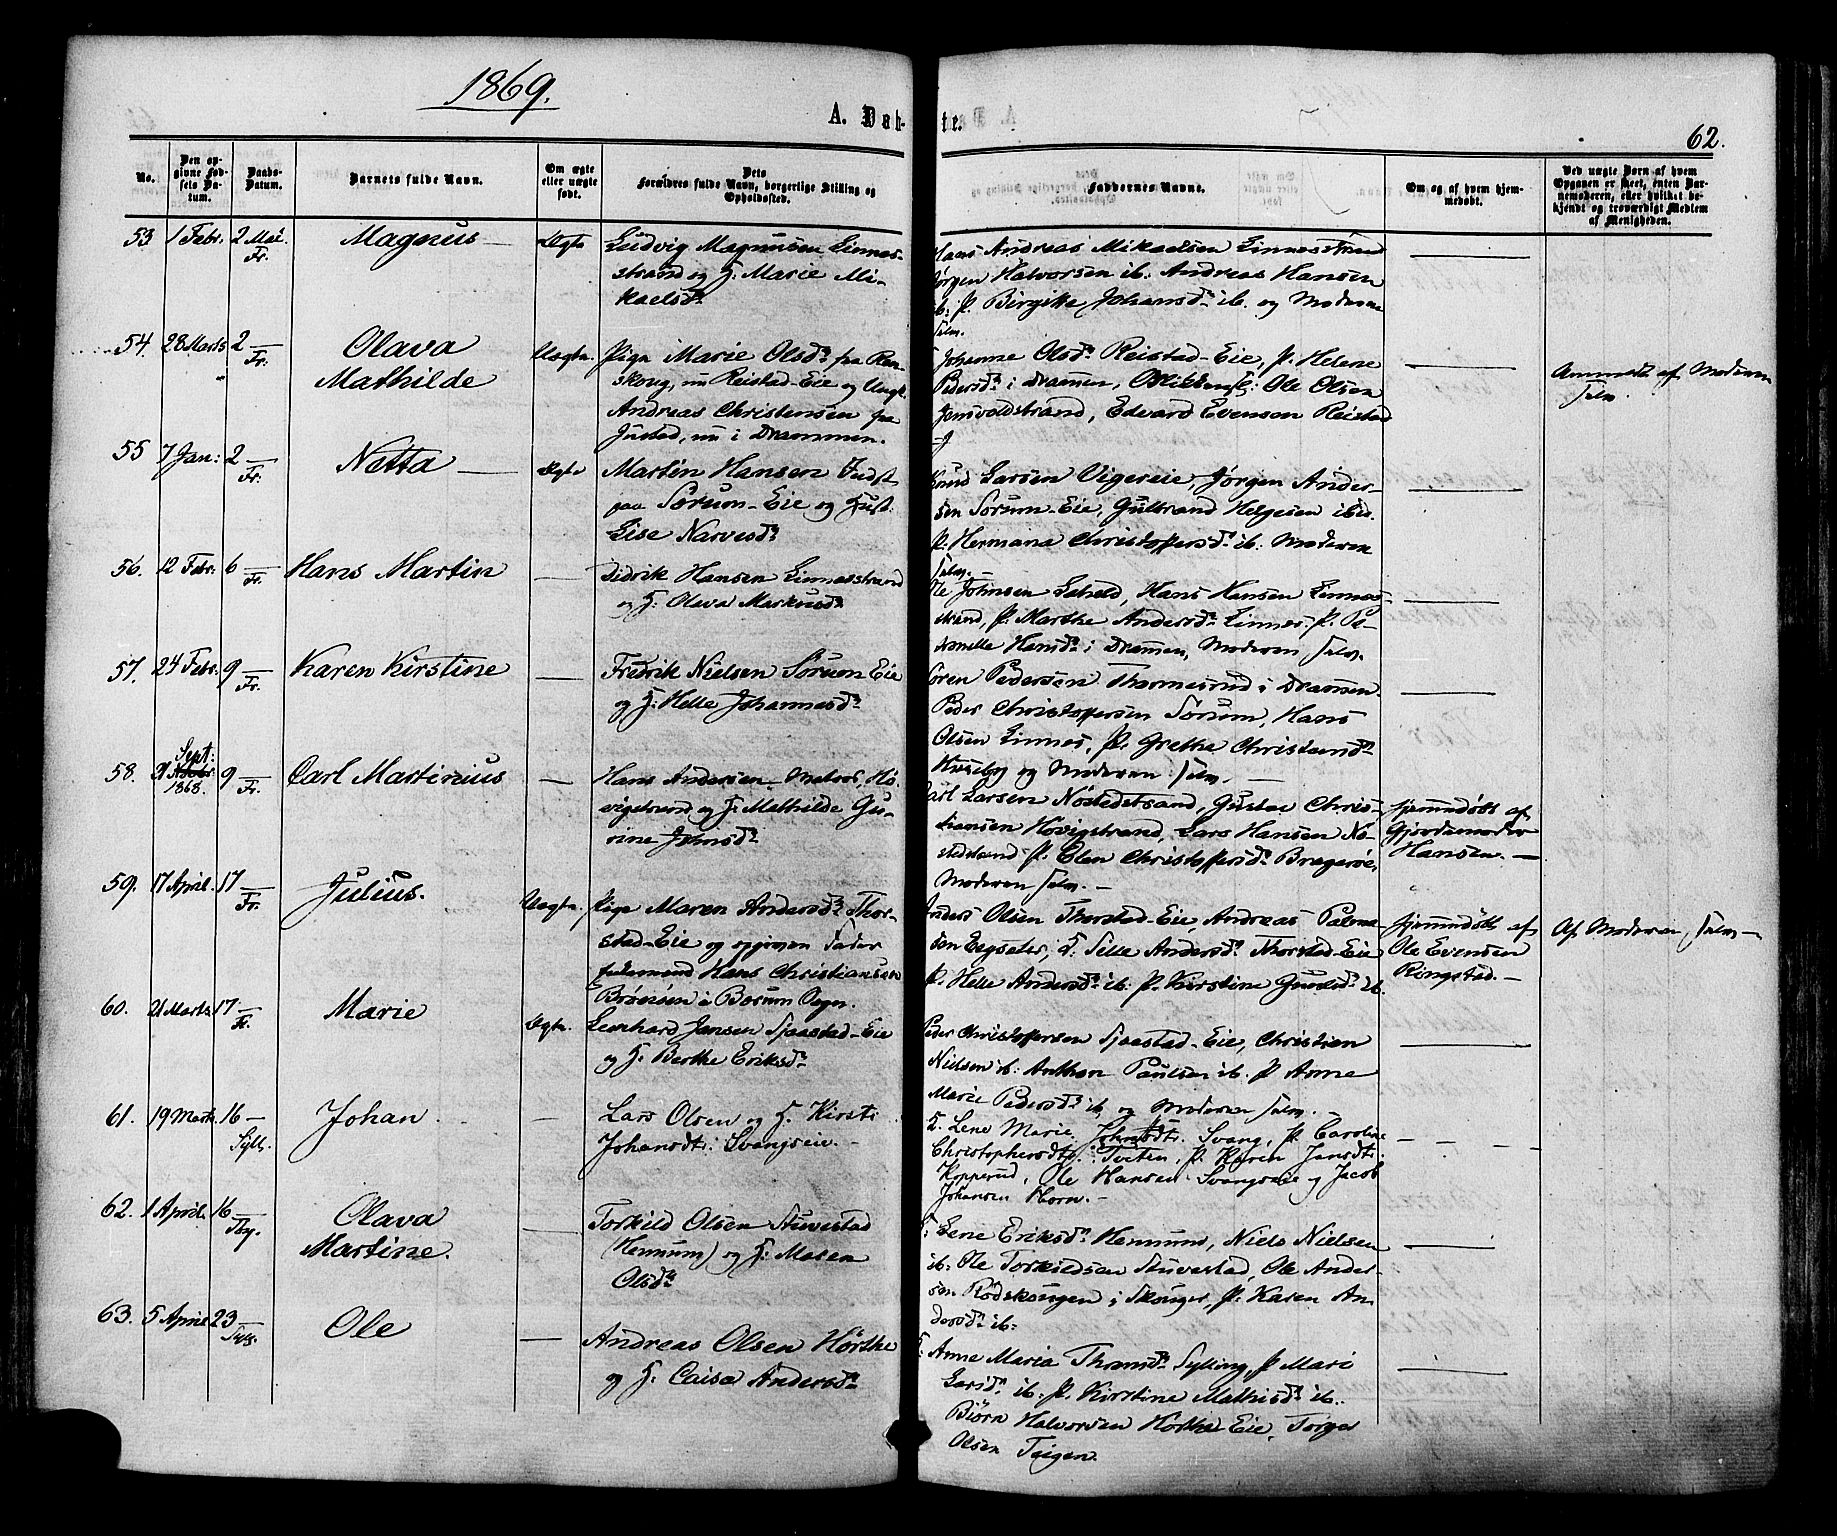 1869.
A. Døb-
te.
62.
No.
Den op-
givne Fød-
sels Da-
tum.
Daabs-
Datum.
Barnets fulde Navn.
Om ægte
eller uægte
født.
Dets
Forældres fulde Navn, borgerlige Stilling og
Opholdssted.
Faddernes Navne.
Om og af hvem hjem-
medøbt.
Ved uægte Børn af hvem
Opgaven er skeet, enten Bar-
nemoderen, eller hvilket be-
kjendt og troværdigt Medlem
af Menigheden.
53 1 Febr. 2 Mai Fr. Magnus Ægte
Ludvig Magnussen Linnes-
strand og H. Marie Mi-
kaelsd.
Hans Andreas Mikaelsen Linnesstrand
Jørgen Halvorsen ib. Andreas Hansen
ib. P. Birgitte Johansd. ib. og Moderen
selv.
54. 28 Marts 2 Fr. Olava
Mathilde
Uægte.
Pige Marie Olsd. fra
skoug, nu Reistad-Eie og Ungk.
Andreas Christensen fra
Justad, nu i Drammen.
Johanne Olsd. Reistad-Eie, P. Helene
Pedersd. i Drammen, Ole Olsen
Jensvoldstrand, Edvard Evensen Reistad
Anmeldt af Moderen
selv.
55 7 Jan: 2 Fr. Netta Ægte
Martin Hansen Indst
paa Sørum-Eie og Hust.
Lise Narvesd.
Knud Larsen Vigereie, Jørgen Ander-
sen Sørum-Eie, Gulbrand Helgesen ibid.
P. Hermana Christoffersd. ib. Moderen
selv.
56. 12 Febr. 6 Fr. Hans Martin
Didrik Hansen Linnesstrand
og H. Olava Markusd.
Ole Johnsen Gaheld, Hans Hansen Linnes-
strand, P. Marthe Andersd. Linnes. P. Pe-
tronelle Hansd. i Drammen, Moderen selv.
57. 24 Febr. 9 Fr. Karen Kirstine
Fredrik Nielsen Sørum Eie
og H. Helle Johannesd.
Søren Pedersen Thornesrud i Drammen.
Peder Christoffersen Sørum, Hans
Olsen Linnes, P. Grethe Christiansd.
Huseby og Moderen selv.
58. 21 Sept: 1868. 9 Fr. Carl Martinius
Hans Andersen, Matros, Hø-
vigstrand og H. Mathilde Gu-
rine Johnsd.
Carl Larsen Nøstedstrand, Gustav Chris-
tiansen Høvigstrand, Lars Hansen Nø-
stedstrand P. Elen Christoffersd. Bragerøe,
Moderen selv.
hjemmedøbt af
Gjordemoder
Hansen.
59. 17 April. 17 Fr. Julius. Uægte.
Pige Maren Andersd. Thor-
stad-Eie og opgiven Fader
Hans Christiansen
i Bærum Pegn.
Anders Olsen Thorstad-Eie, Andreas
Engseter, H. Sille Andersd. Thorstad-Eie
P. Helle Andersd. ib. P. Kirstine Gundersd. ib.
hjemmedøbt af
Ole Evensen
Ringstad.
Af Moderen selv
60. 21 Marts 17 Fr. Marie Ægte.
Leonhard Jansen Sjaastad-Eie
og H. Berthe Eriksd.
Peder Christoffersen Sjaastad-Eie, Christian
Nielsen ib. Anthon Paulsen ib. P. Anne
Marie Pedersd. ib. og Moderen selv.
61. 19 Marts 16 Syll. Johan.
Lars Olsen og H. Kirsti
Johansdt: Svangseie.
H. Lene Marie Johnsdt. Svang, P. Caroline
Christophersdt. Tveten, P. Karen Jansdt:
Kopperud, Ole Hansen Svangseie og Jacob
Johansen Horn.
62. 1 April. 16 Tby. Olava
Martine.
Torkild Olsen Stuvestad
(Hennum) og H. Maren
Olsd.
H: Lene Eriksd. Hennum, Niels Nielsen
ib. Ole Torkildsen Stuvestad, Ole Ander-
sen Rødskougen i Skouger, P. Karen An-
dersd. ib.
63. 5 April 23 Syll. Ole
Andreas Olsen Hørthe
og H. Caisa Andersd.
H. Anne Maria Thomsd. Sylling, P. Mari
Larsd. ib. P. Kirstine Mathisd. ib.
Biørn Halvorsen Hørthe Eie, Torger
Olsen Teigen.